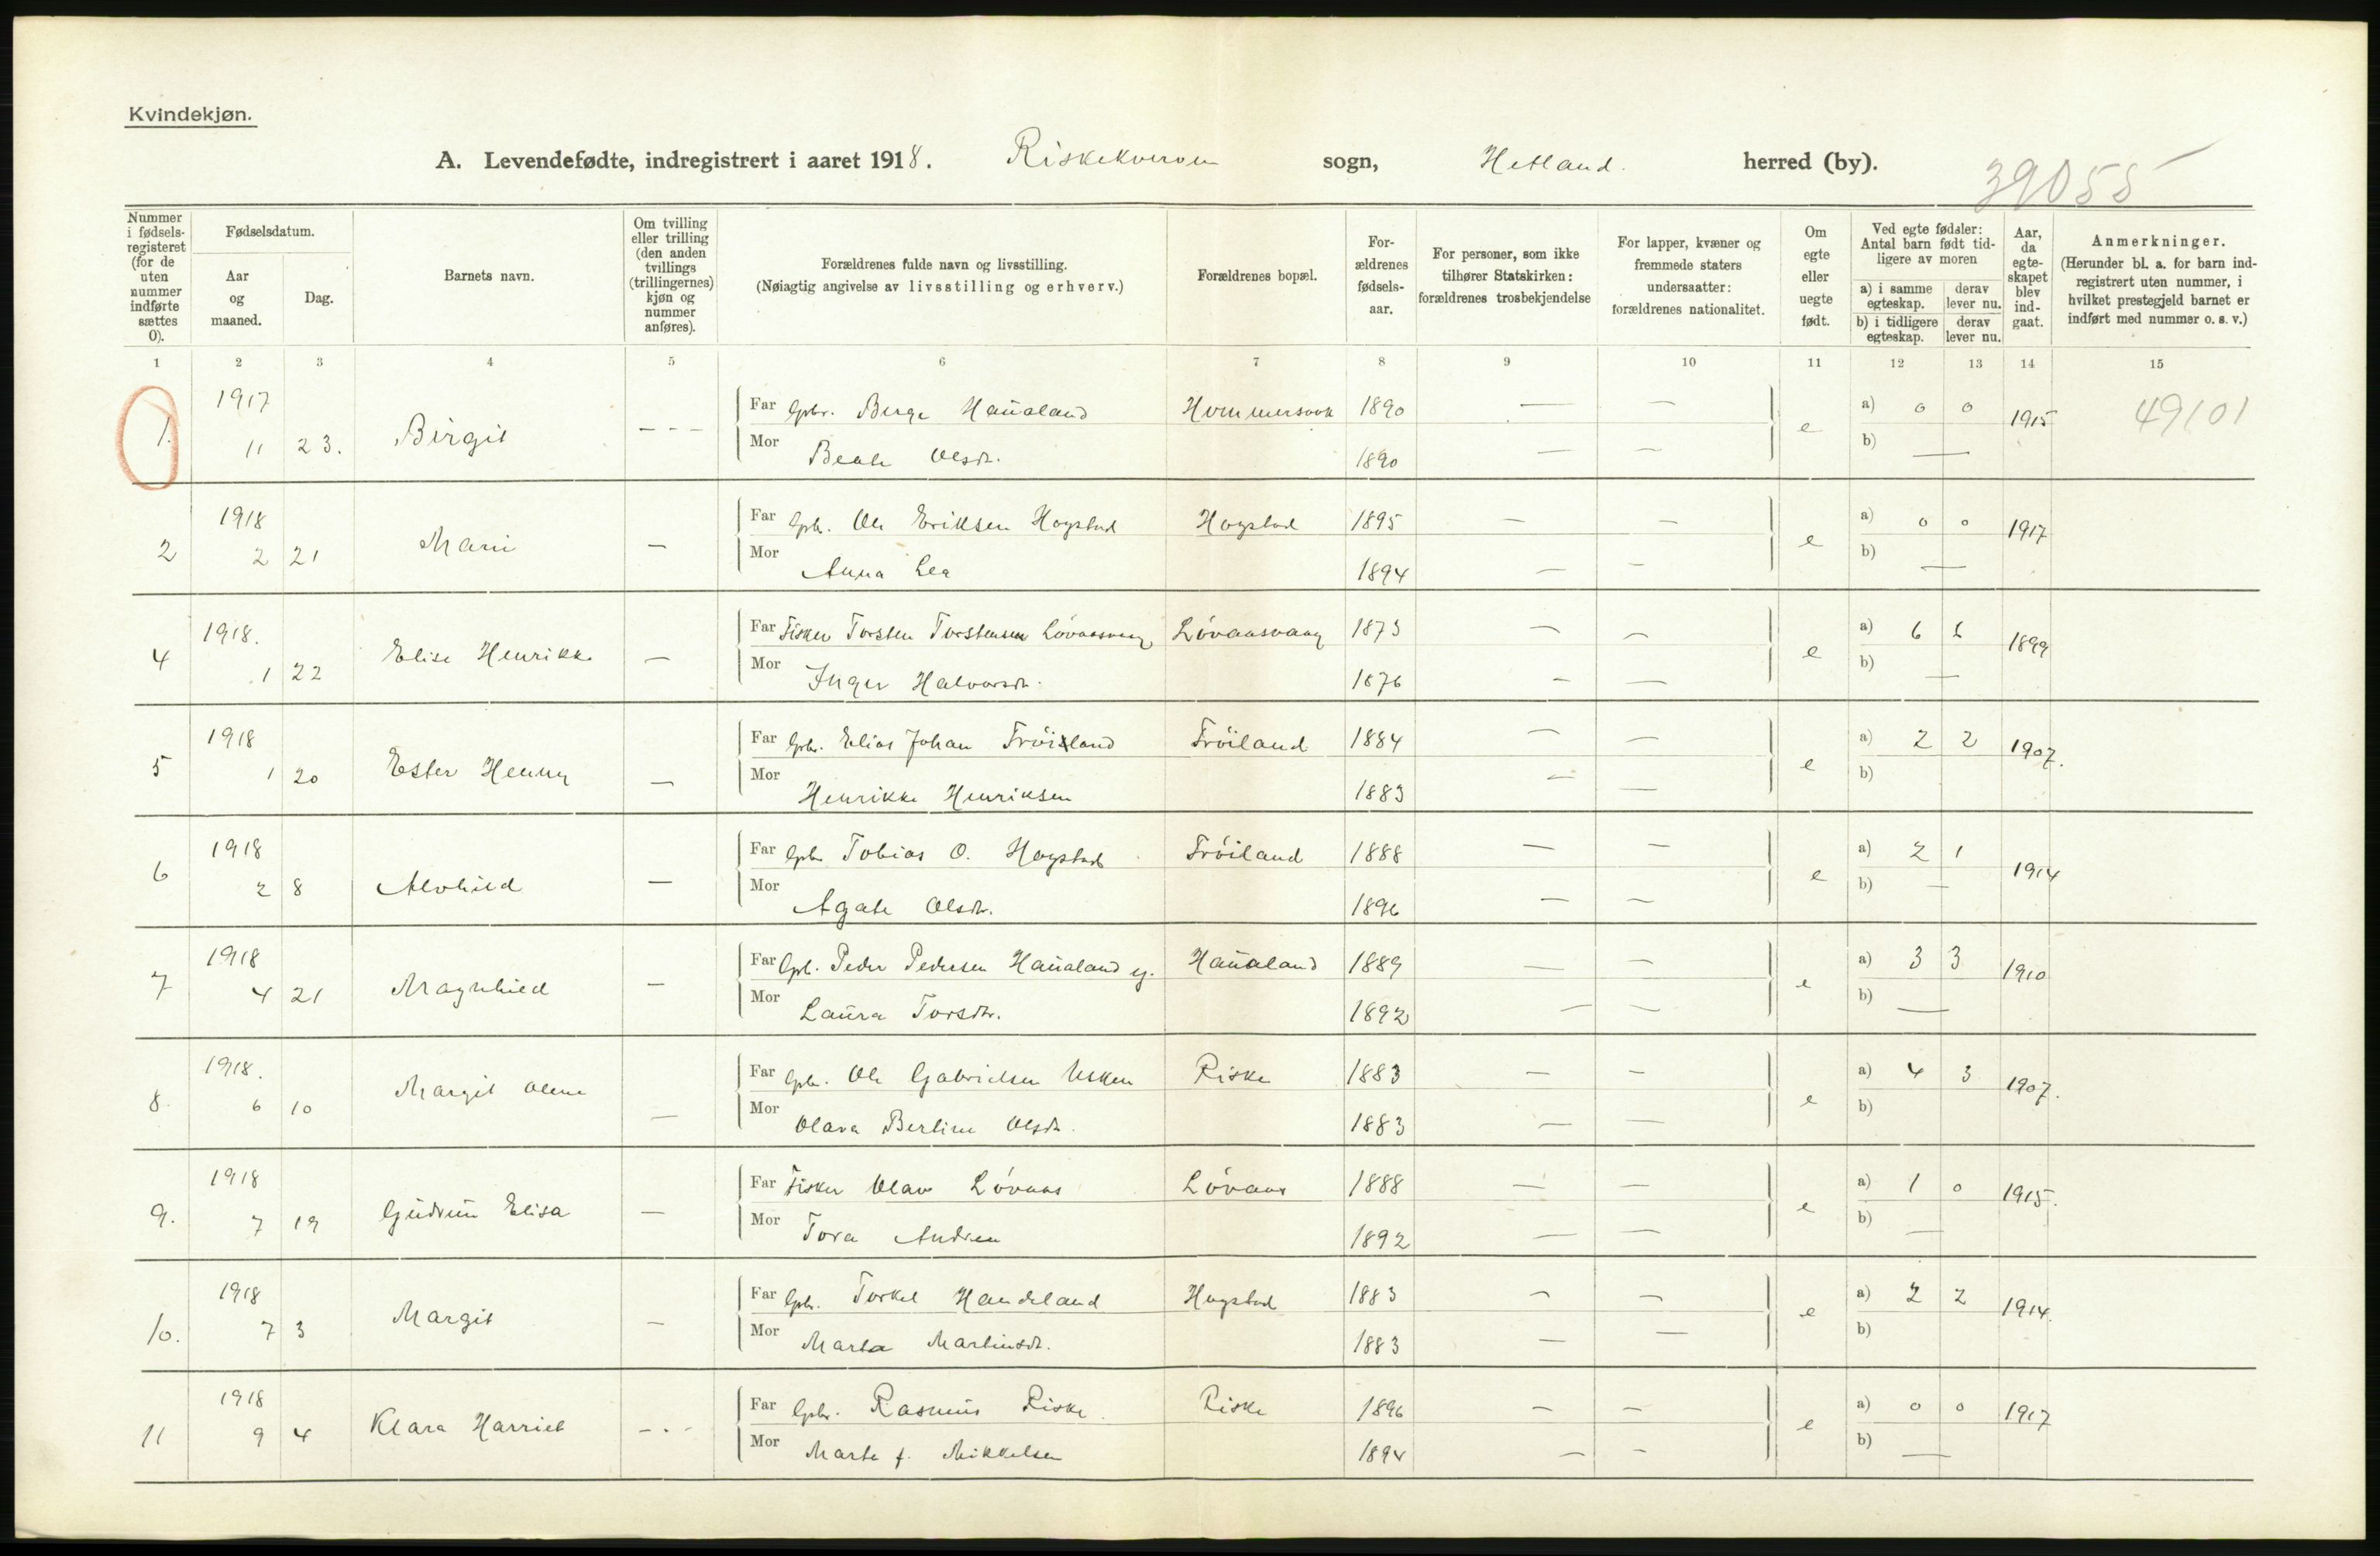 Kvindekjøn.
A. Levendefødte, indregistrert i aaret 1918. Riskekverven sogn, Hetland. herred (by).
39055
Nummer i fødsels-registeret (for de uten nummer indførte sættes 0).
Fødselsdatum.
Aar og maaned.
Dag.
Barnets navn.
Om tvilling eller trilling (den anden tvillings (trillingernes) kjøn og nummer anføres).
Forældrenes fulde navn og livsstilling.
(Nøiagtig angivelse av livsstilling og erhverv.)
Forældrenes bopæl.
For-ældrenes fødsels-aar.
For personer, som ikke tilhører Statskirken: forældrenes trosbekjendelse
For lapper, kvæner og fremmede staters undersaatter: forældrenes nationalitet.
Om egte eller uegte født.
Ved egte fødsler: Antal barn født tid-ligere av moren
a) i samme egteskap. derav lever nu.
b) i tidligere egteskap. derav lever nu.
Aar, da egte-skapet blev ind-gaat.
Anmerkninger.
(Herunder bl. a. for barn ind-registrert uten nummer, i hvilket prestegjeld barnet er indført med nummer o. s. v.)
1 2 3 4 5 6 7 8 9 10 11 12 13 14 15
1917 Far Gbr. Berge Haualand Hommersvik 1890 — — a) 0 0
1. 11 23. Birgit - - - e 1915 49101
Mor Beate Olsdt. 1890 — — b) —
1918 Far Gbr. Ole Eriksen Hogstad Hogstad 1895 — — a) 0 0
2 2 21 Mari — e 1917
Mor Anna Lea 1894 — — b) —
1918. Far Fisker Torsten Torstensen Lövaasvaag Lövaasvaag 1873 — — a) 6 6
4 1 22 Elise Henrikke — e 1899
Mor Inger Halvorsdt. 1876 — — b) —
1918 Far Gbr. Elias Johan Fröiland Fröiland 1884 — — a) 2 2
5 1 20 Ester Henny — e 1907.
Mor Henrikke Henriksen 1883 — — b)
1918 Far Gbr. Tobias O. Hogstad Fröiland 1888 — — a) 2 1
6 2 8 Alvhild — e 1914
Mor Agate Olsdt. 1896 — — b) —
1918 Far Gbr. Peder Pedersen Haualand yj. Haualand 1889 — — a) 3 3
7 4 21 Magnhild — e 1910
Mor Laura Torsdtr. 1892 — — b) —
1918. Far Gbr. Ole Gabrielsen Usken Riske 1883 — — a) 4 3
8. 6 10 Margit Olene — e 1907.
Mor Olava Berline Olsdt. 1883 — — b)
1918 Far Fisker Olav Lövaas Lövaas 1888 — — a) 1 0
9. 7 19 Gudrun Elisa — e 1915.
Mor Tora Andrea 1892 — — b) —
1918 Far Gbr. Torkel Handeland Hogstad 1883 — — a) 2 2
10. 7 3 Margit — e 1914.
Mor Marta Martinsdt. 1883 — — b)
1918 Far Gbr. Rasmus Riske Riske 1896 — — a) 0 0
11 9 4 Klara Harriet - - - e 1917
Mor Marte f. Mikkelsen 1894 — — b) —